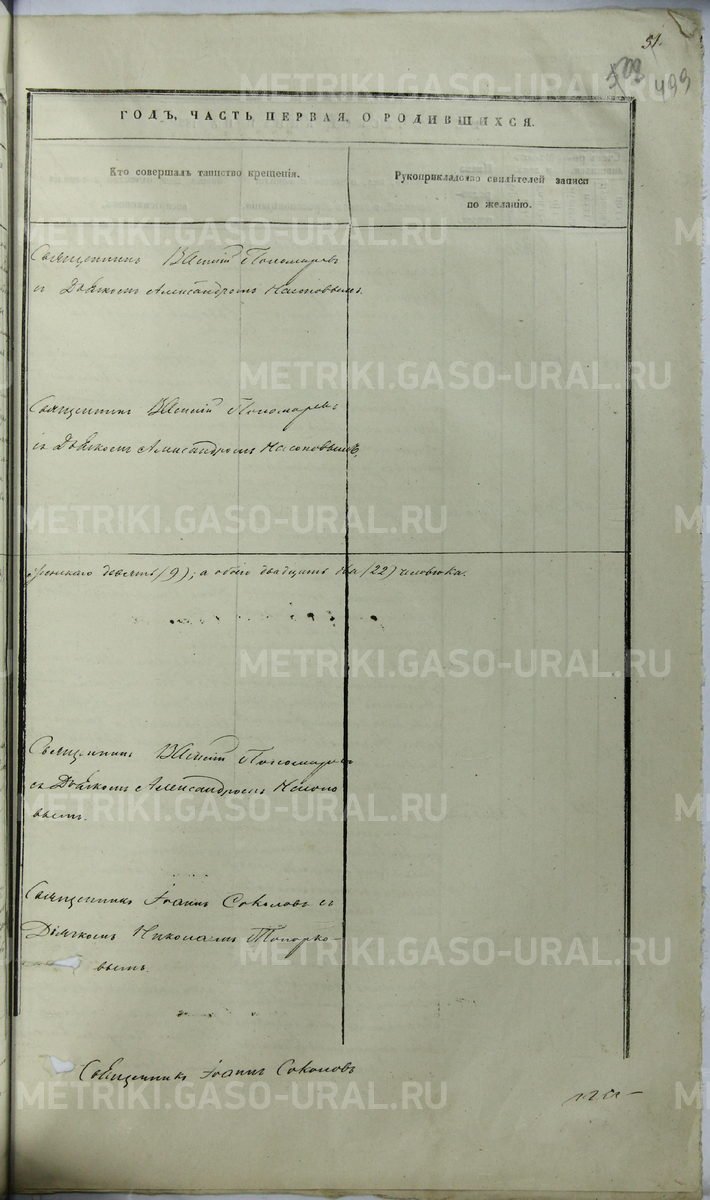 51.
502
499
ГОДЪ, ЧАСТЬ ПЕРВАЯ, О РОДИВШИХСЯ.
Кто совершалъ таинство крещенія.
Рукоприкладство свидѣтелей записи
по желанію.
Священникъ Василій Пономаревъ
съ Дьячкомъ Александромъ Насоновымъ.
Священникъ Василій Пономаревъ
съ Дьячкомъ Александромъ Насоновымъ.
женскаго девять (9); а обоего двадцать два (22) человѣка.
Священникъ Василій Пономаревъ
съ Дьячкомъ Александромъ Насоно
вымъ.
Священникъ Іоаннъ Соколовъ съ
Дьячкомъ Николаемъ Топорко-
вымъ.
Священникъ Іоаннъ Соколовъ
METRIKI.GASO-URAL.RU